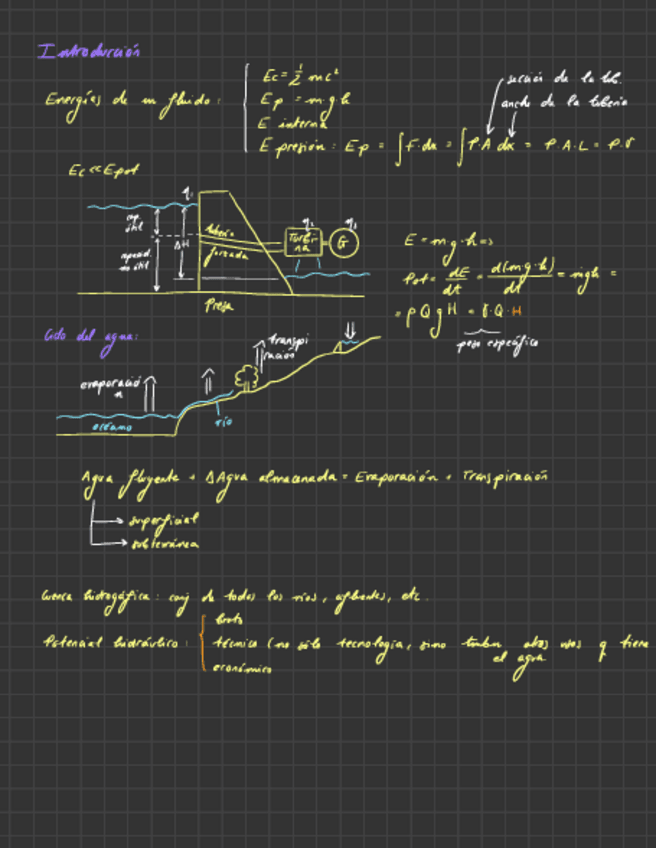 Introducción
Energías de un fluido:
Ec = 1/2 mc²
Ep = m·g·h
E interna
E presión: Ep = ∫F·dx = ∫P·A dx = P·A·L = P·V
sección de la tub.
ancho de la tubería
Ec << Epot
η1
cap. útil
ΔH
tubería
forzada
η2
Turbi-
na
η3
G
Presa
E = m g h =>
Pot = dE/dt = d(m·g·h)/dt = mgh =
= ρ Q g H = γ·Q·H
peso específico
Ciclo del agua:
evaporació
n
transpi
ración
océano
río
Agua fluyente + ΔAgua almacenada = Evaporación + Transpiración
superficial
subterránea
Cuenca hidrográfica: conj de todos los ríos, afluentes, etc.
Potencial hidráulico:
bruto
técnico (no sólo tecnología, sino tambn otros usos q tiene
el agua
económico